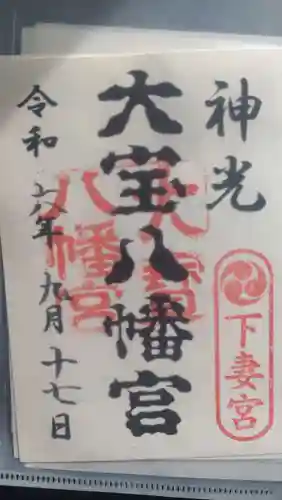 神光
下妻宮
大宝八幡宮
大寶八幡宮
令和六年九月十七日